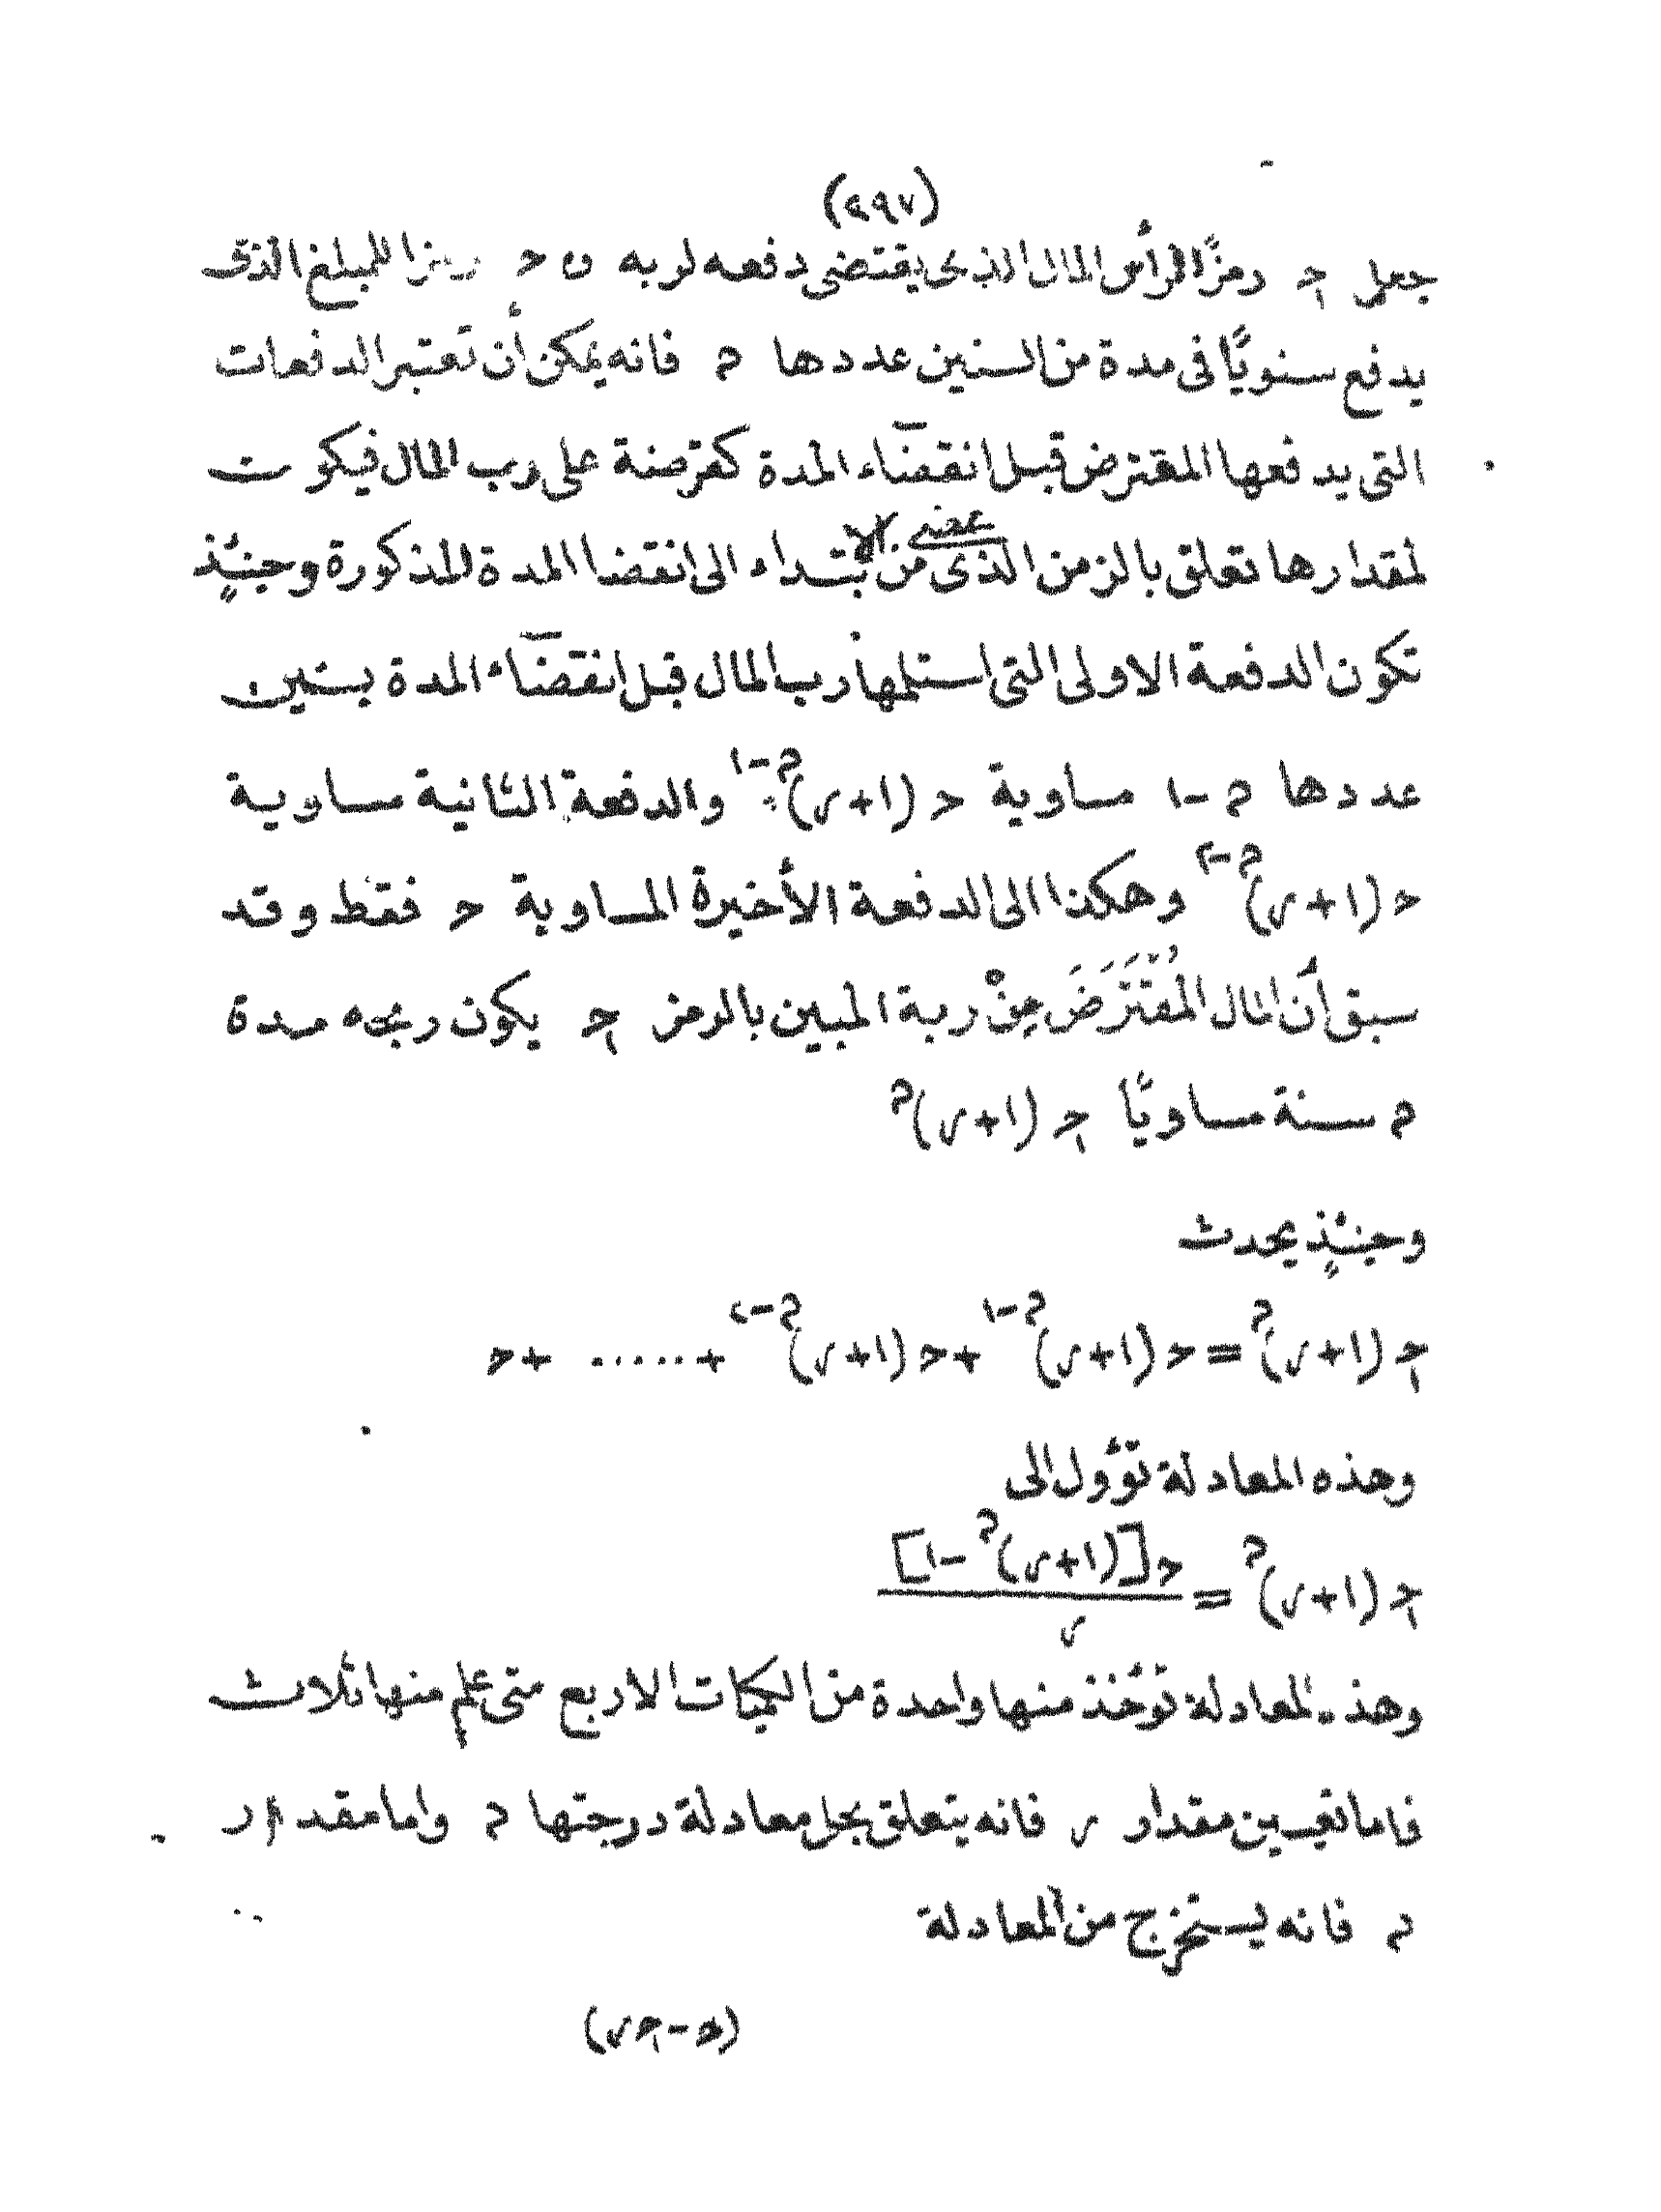 (٢٩٧)
جعل حـ رمزًا لرأس المال الذى يقتضى دفعه لربه و د رمزا للمبلغ الذى
يدفع سنويًّا فى مدة من السنين عددها م فانه يمكن أن تعتبر الدفعات
التى يدفعها المقترض قبل انقضاء المدة كقرضة على رب المال فيكون
لمقدارها تعلق بالزمن الذى يمضى من الابتداء الى انقضا المدة المذكورة وحينئذٍ
تكون الدفعة الاولى التى استلمها رب المال قبل انقضاء المدة بسنين
عددها م-١ مساوية د (١+ر)^م-١ والدفعة الثانية مساوية
د (١+ر)^م-٢ وهكذا الى الدفعة الأخيرة المساوية د فقط وقد
سبق أن المال المُقْتَرَضَ مِنْ ربة المبين بالرمز حـ يكون ربحه مدة
م سنة مساويًّا حـ (١+ر)^م
وحينئذٍ يحدث
حـ (١+ر)^م = د (١+ر)^م-١ + د (١+ر)^م-٢ + ...... + د
وهذه المعادلة تؤول الى
حـ (١+ر)^م = د[(١+ر)^م -١] / ر
وهذه المعادلة تؤخذ منها واحدة من الكميات الاربع متى علم منها ثلاث
فاما تعيين مقدار ر فانه يتعلق بحل معادلة درجتها م واما مقدار
م فانه يستخرج من المعادلة
(د - حـ ر)